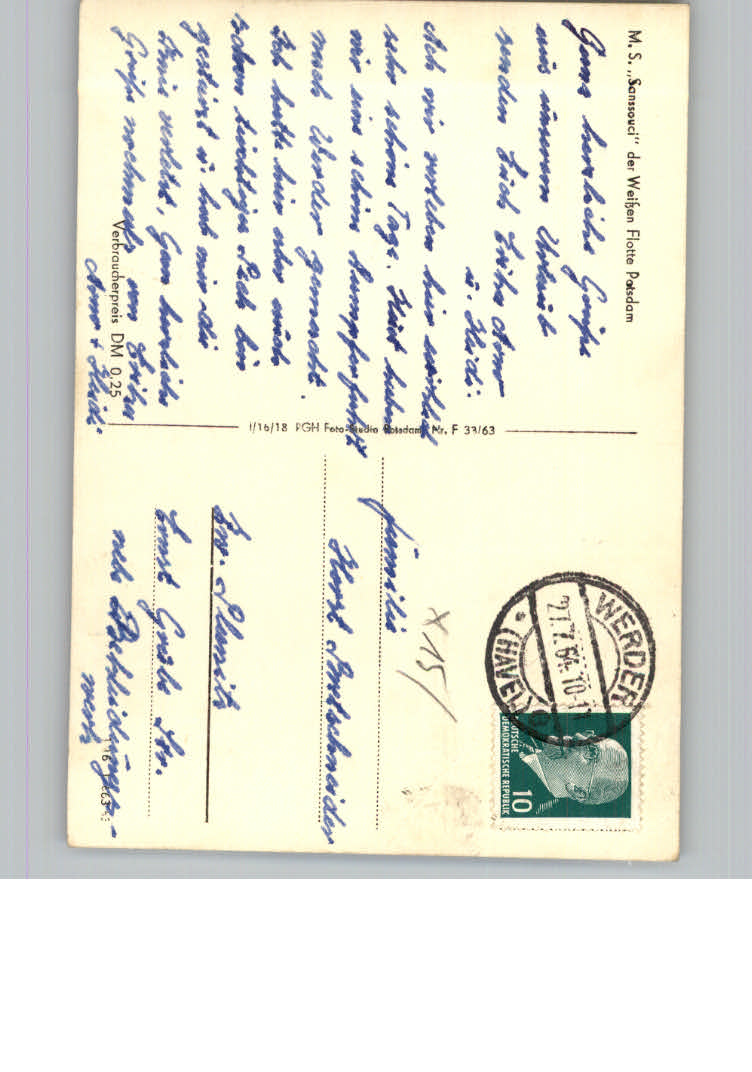 M. S. „Sanssouci" der Weißen Flotte Potsdam
Ganz herzliche Grüße
aus unserem Urlaub
senden Euch Erika Arno
u. Heidi.
Ach wir erleben hier wirklich
sehr schöne Tage. Heut haben
wir eine schöne Dampferfahrt
nach Werder gemacht.
Ich hatte hier aber auch
schon tüchtiges Pech bin
gestürzt u. hab mir die
Knie verletzt, Ganz herzliche
Grüße nochmals von Erika
Arno + Heidi.
Verbraucherpreis DM 0,25
I/16/18 PGH Foto-Studio Potsdam, Nr. F 33/63
WERDER
27.7.64.10-
(HAVEL)
DEUTSCHE
DEMOKRATISCHE REPUBLIK
10
x 15/
Familie
Horst
Ernst
Str.
neb. Bekleidungs-
werk